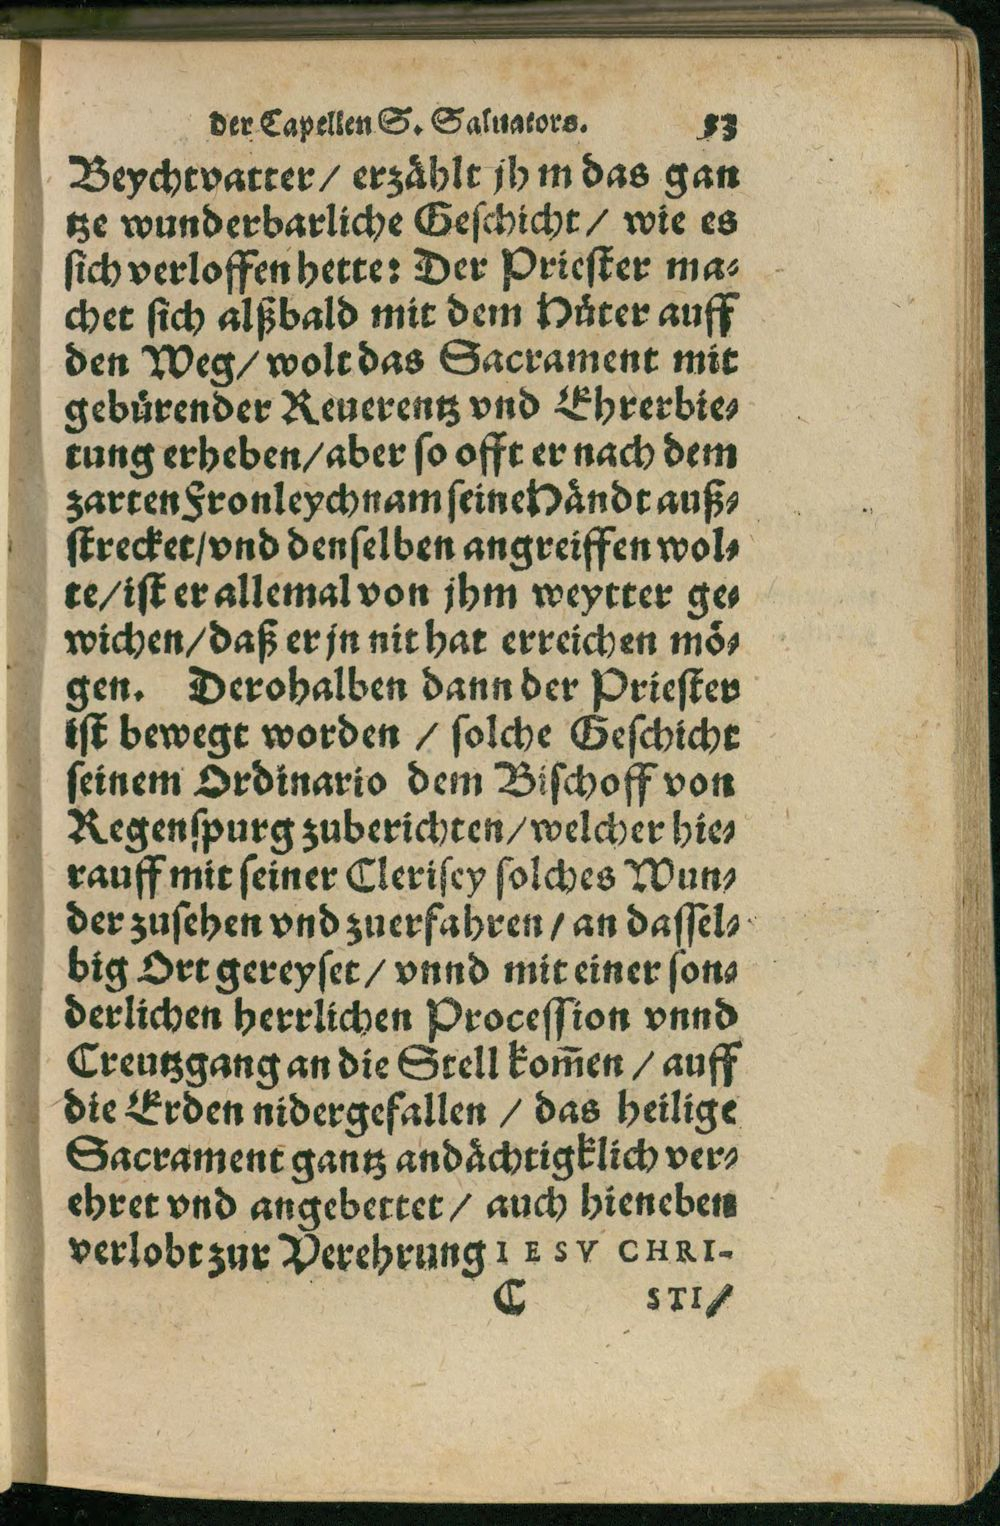 der Capellen S. Saluators. 33
Beychtvatter / erzählt jhm das gan
tze wunderbarliche Geschicht / wie es
sich verloffen hette: Der Priester ma-
chet sich alßbald mit dem Hüter auff
den Weg / wolt das Sacrament mit
gebürender Reuerentz vnd Ehrerbie-
tung erheben / aber so offt er nach dem
zarten Fronleychnam seine Händt auß-
strecket / vnd denselben angreiffen wol-
te / ist er allemal von jhm weytter ge-
wichen / daß er jn nit hat erreichen mö-
gen. Derohalben dann der Priester
ist bewegt worden / solche Geschicht
seinem Ordinario dem Bischoff von
Regenspurg zuberichten / welcher hie-
rauff mit seiner Clerisey solches Wun-
der zusehen vnd zuerfahren / an dassel-
big Ort gereyset / vnnd mit einer son-
derlichen herrlichen Procession vnnd
Creutzgang an die Stell kom̄en / auff
die Erden nidergefallen / das heilige
Sacrament gantz andächtigklich ver-
ehret vnd angebettet / auch hieneben
verlobt zur Verehrung IESV CHRI-
C STI /